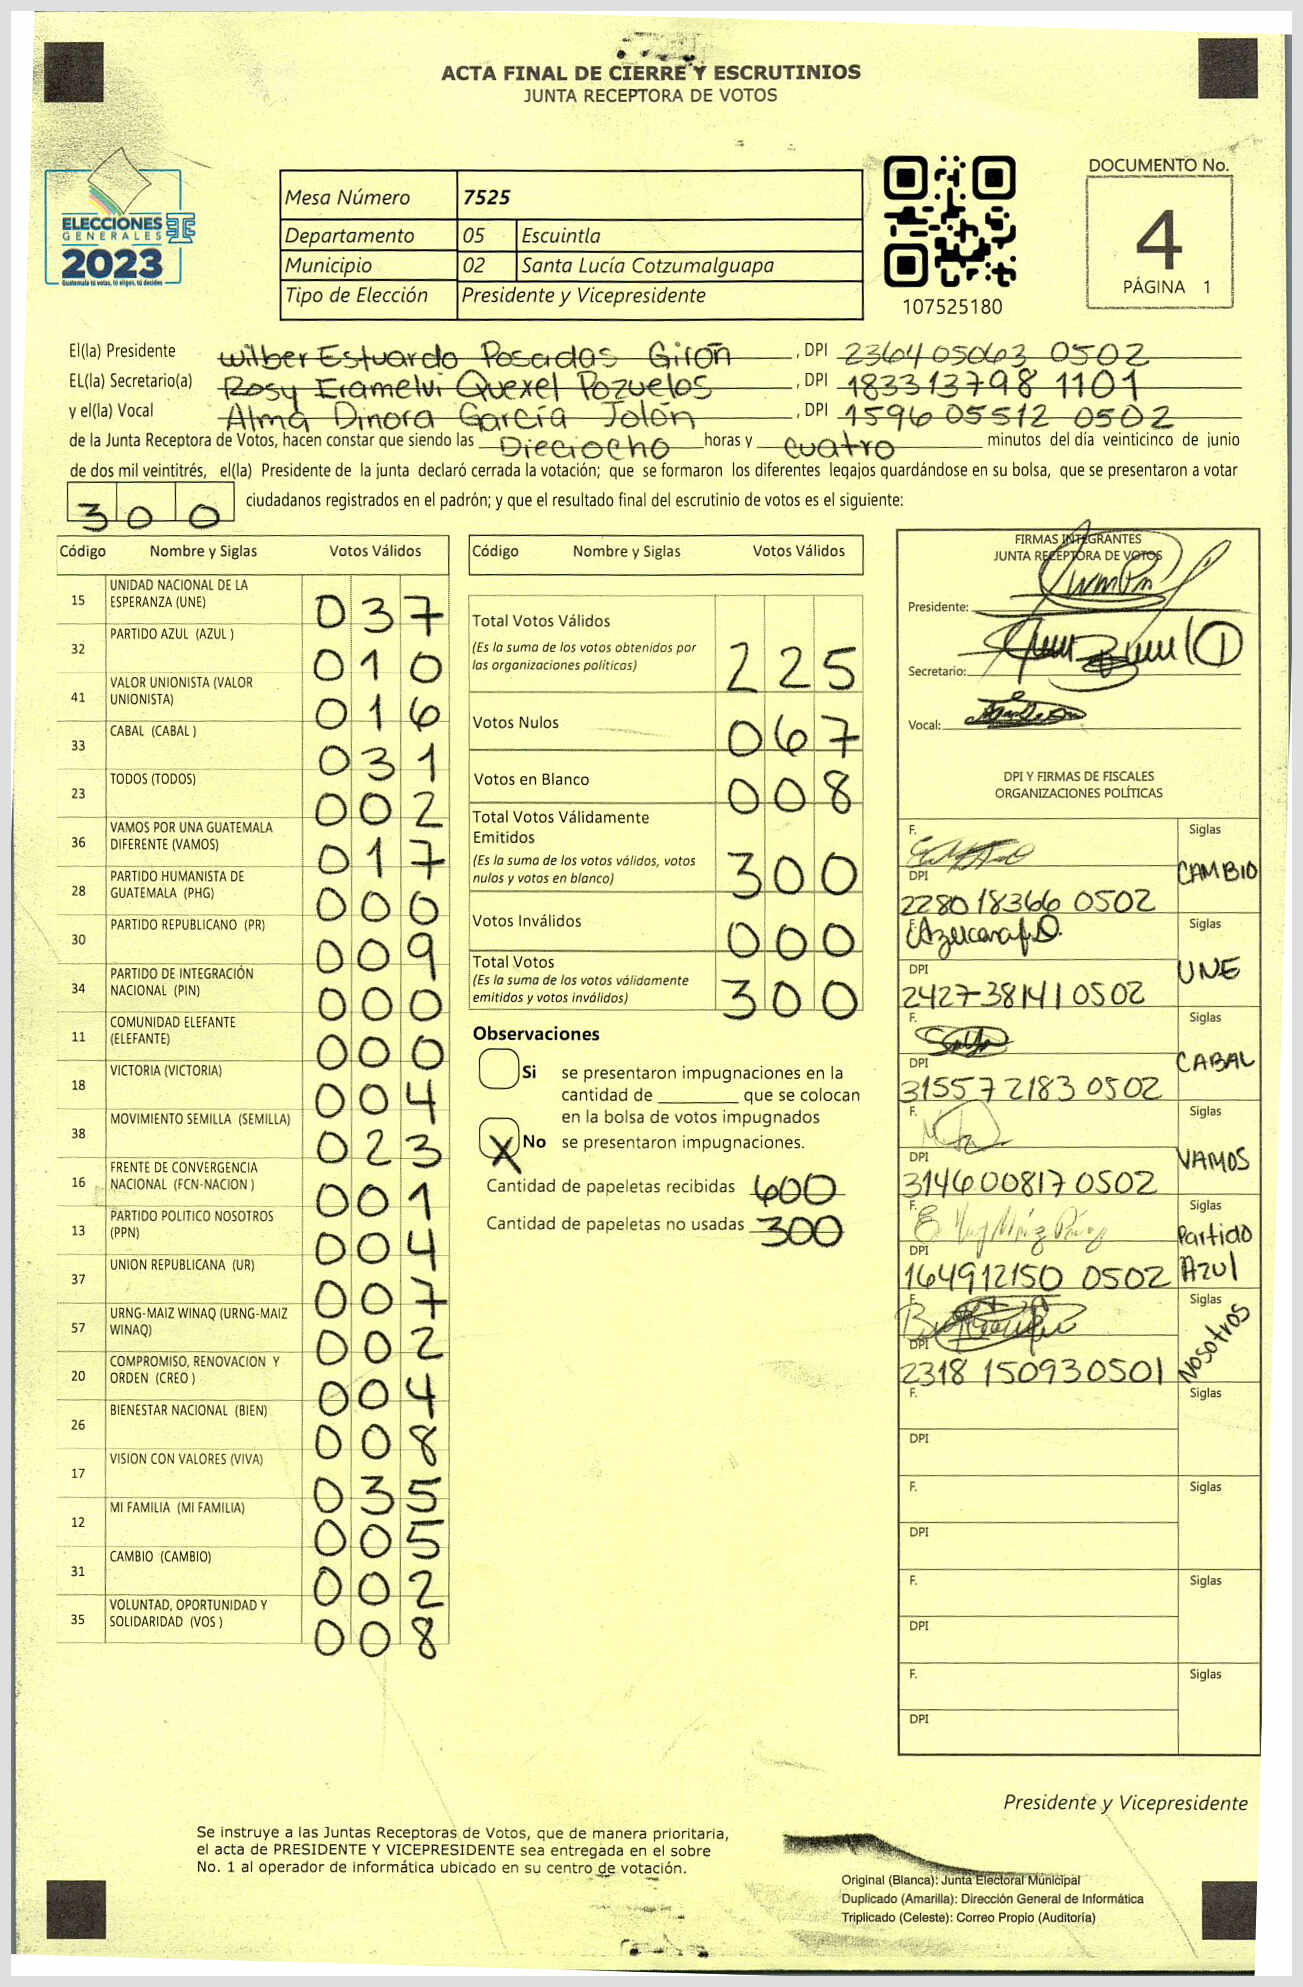 ACTA FINAL DE CIERRE Y ESCRUTINIOS
JUNTA RECEPTORA DE VOTOS
ELECCIONES
GENERALES
2023
Guatemala tú votas, tú eliges, tú decides
Mesa Número 7525
Departamento 05 Escuintla
Municipio 02 Santa Lucía Cotzumalguapa
Tipo de Elección Presidente y Vicepresidente
107525180
DOCUMENTO No.
4
PÁGINA 1
El(la) Presidente Wilber Estuardo Posadas Girón , DPI 2364 05063 0502
EL(la) Secretario(a) Rosy Eramelvi Quexel Pozuelos , DPI 183313798 1101
y el(la) Vocal Alma Dinora García Jolón , DPI 1596 05512 0502
de la Junta Receptora de Votos, hacen constar que siendo las Dieciocho horas y cuatro minutos del día veinticinco de junio
de dos mil veintitrés, el(la) Presidente de la junta declaró cerrada la votación; que se formaron los diferentes legajos quardándose en su bolsa, que se presentaron a votar
300 ciudadanos registrados en el padrón; y que el resultado final del escrutinio de votos es el siguiente:
Código Nombre y Siglas Votos Válidos
15 UNIDAD NACIONAL DE LA ESPERANZA (UNE) 037
32 PARTIDO AZUL (AZUL ) 010
41 VALOR UNIONISTA (VALOR UNIONISTA) 016
33 CABAL (CABAL ) 031
23 TODOS (TODOS) 002
36 VAMOS POR UNA GUATEMALA DIFERENTE (VAMOS) 017
28 PARTIDO HUMANISTA DE GUATEMALA (PHG) 000
30 PARTIDO REPUBLICANO (PR) 009
34 PARTIDO DE INTEGRACIÓN NACIONAL (PIN) 000
11 COMUNIDAD ELEFANTE (ELEFANTE) 000
18 VICTORIA (VICTORIA) 004
38 MOVIMIENTO SEMILLA (SEMILLA) 023
16 FRENTE DE CONVERGENCIA NACIONAL (FCN-NACION ) 001
13 PARTIDO POLITICO NOSOTROS (PPN) 004
37 UNION REPUBLICANA (UR) 007
57 URNG-MAIZ WINAQ (URNG-MAIZ WINAQ) 002
20 COMPROMISO, RENOVACION Y ORDEN (CREO ) 004
26 BIENESTAR NACIONAL (BIEN) 008
17 VISION CON VALORES (VIVA) 035
12 MI FAMILIA (MI FAMILIA) 005
31 CAMBIO (CAMBIO) 002
35 VOLUNTAD, OPORTUNIDAD Y SOLIDARIDAD (VOS ) 008
Código Nombre y Siglas Votos Válidos
Total Votos Válidos
(Es la suma de los votos obtenidos por las organizaciones políticas) 225
Votos Nulos 067
Votos en Blanco 008
Total Votos Válidamente Emitidos
(Es la suma de los votos válidos, votos nulos y votos en blanco) 300
Votos Inválidos 000
Total Votos
(Es la suma de los votos válidamente emitidos y votos inválidos) 300
Observaciones
Si se presentaron impugnaciones en la
cantidad de ________ que se colocan
en la bolsa de votos impugnados
X No se presentaron impugnaciones.
Cantidad de papeletas recibidas 600
Cantidad de papeletas no usadas 300
FIRMAS INTEGRANTES
JUNTA RECEPTORA DE VOTOS
Presidente:
Secretario:
Vocal:
DPI Y FIRMAS DE FISCALES
ORGANIZACIONES POLÍTICAS
F. Siglas
CAMBIO
DPI
2280 18366 0502
F. Siglas
UNE
DPI
2427 38141 0502
F. Siglas
CABAL
DPI
31557 2183 0502
F. Siglas
VAMOS
DPI
3146 00817 0502
F. Siglas
Partido Azul
DPI
164912150 0502
F. Siglas
Nosotros
DPI
2318 15093 0501
F. Siglas
DPI
F. Siglas
DPI
F. Siglas
DPI
F. Siglas
DPI
Presidente y Vicepresidente
Se instruye a las Juntas Receptoras de Votos, que de manera prioritaria,
el acta de PRESIDENTE Y VICEPRESIDENTE sea entregada en el sobre
No. 1 al operador de informática ubicado en su centro de votación.
Original (Blanca): Junta Electoral Municipal
Duplicado (Amarilla): Dirección General de Informática
Triplicado (Celeste): Correo Propio (Auditoría)